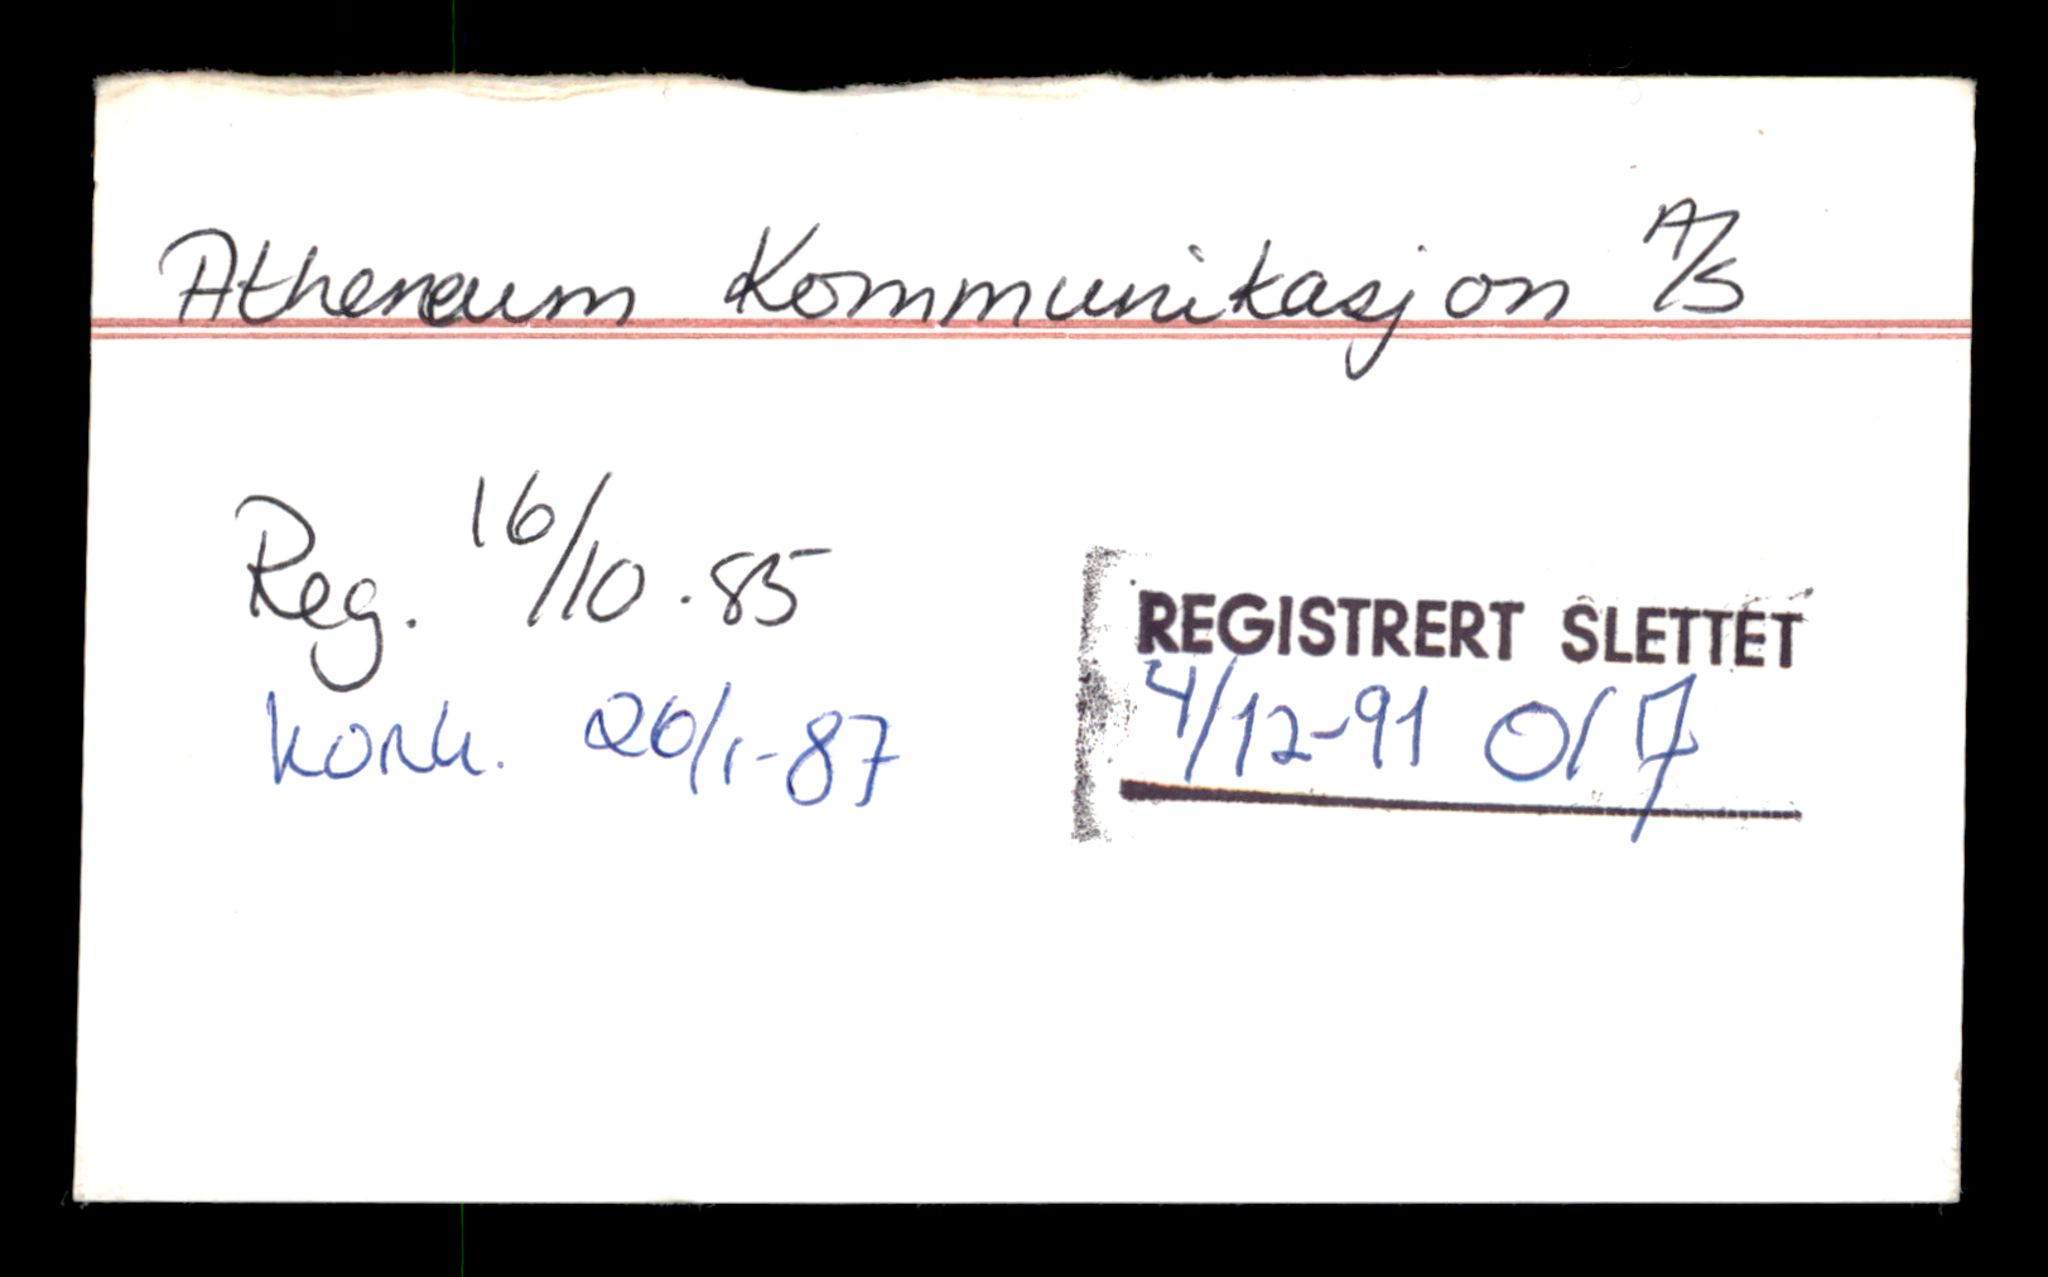 Atheneum Kommunikasjon A/S
Reg. 16/10.85
REGISTRERT SLETTET
konk. 20/1-87
4/12-91